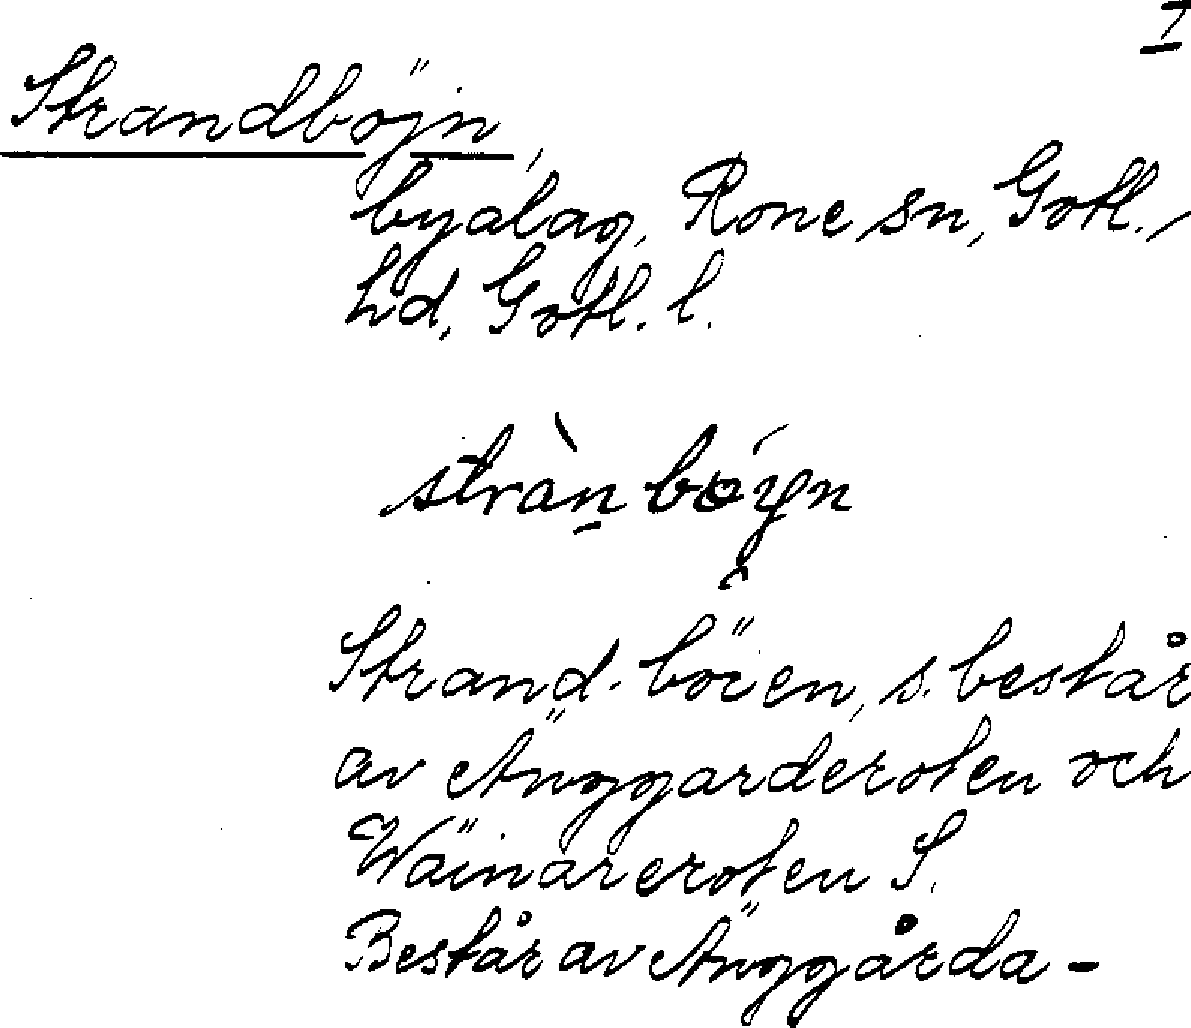 1
Strandböjn,
byalag, Rone sn, Gotl.,
hd, Gotl. l.
stràn bóyn
Strand-böien, s. består
av Änggarderoten och
Wäinareroten S.
Består av Änggårda-